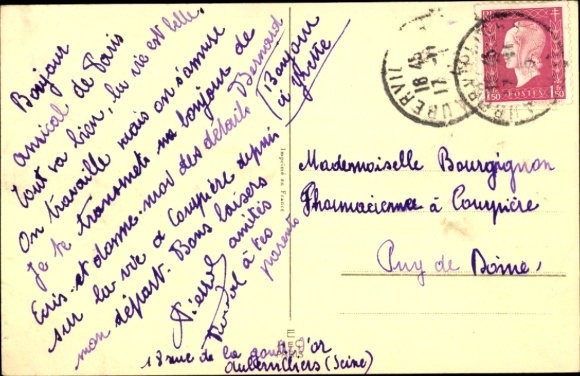 Bonjour
amical de Paris
Tout va bien, la vie est belle.
On travaille mais on s'amuse
Je te transmets un bonjour de Bernard
Ecris et donne-moi des détails
sur la vie à Courpière depuis
mon départ. Bons baisers
amitiés
à tes
parents
Pierrot
Bonjour
à
18 rue de la goutte d'or
Aubervilliers (Seine)
Imprimé en France
Mademoiselle Bourgignon
Pharmacienne à Courpière
Puy de Dôme
AUBERVIL
18 45
17
1F50 POSTES 1F50